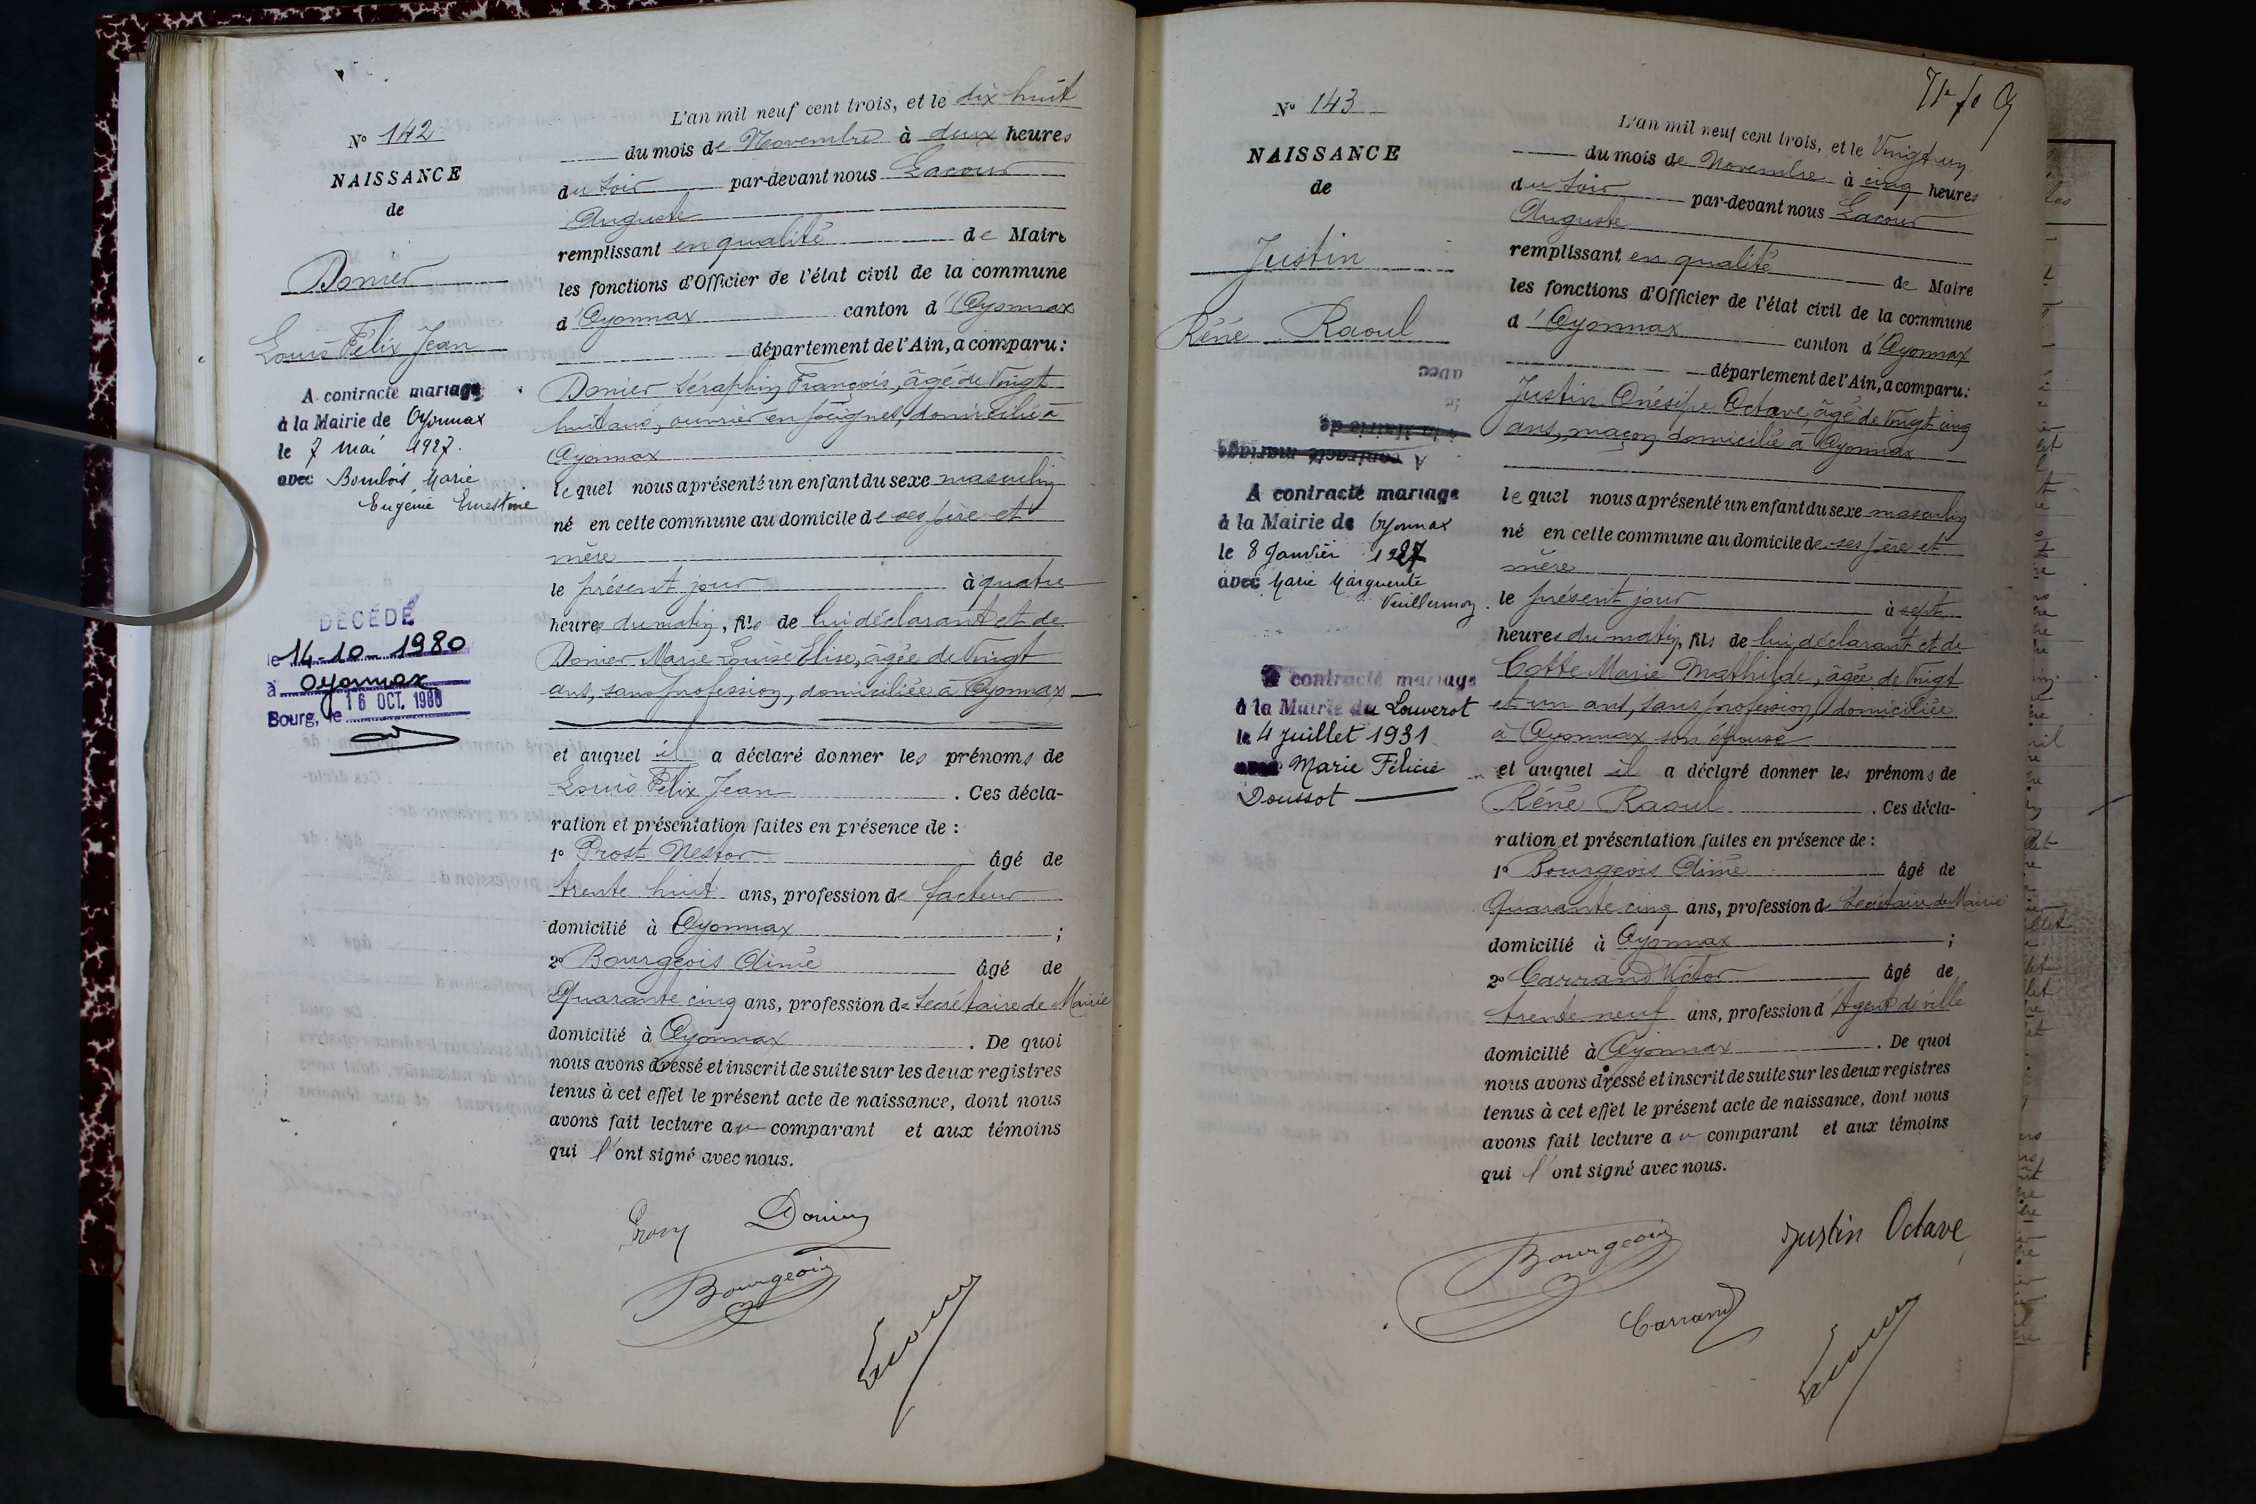 N° 142
NAISSANCE
de
Donier
Louis Félix Jean
A contracté mariage
à la Mairie de Oyonnax
le 7 mai 1927.
avec Bombois Marie
Eugénie Ernestine
DÉCÉDÉ
le 14-10-1980
à Oyonnax
Bourg, le 16 OCT. 1980
L'an mil neuf cent trois, et le dix huit
du mois de Novembre à deux heures
du soir par-devant nous Lacour
Auguste
remplissant en qualité de Maire
les fonctions d'Officier de l'état civil de la commune
d'Oyonnax canton d'Oyonnax
département de l'Ain, a comparu :
Donier Séraphin François, âgé de Vingt
huit ans, ouvrier en peignes, domicilié à
Oyonnax
lequel nous a présenté un enfant du sexe masculin
né en cette commune au domicile de ses père et
mère
le présent jour à quatre
heures du matin, fils de lui déclarant et de
Donier Marie Louise Elise, âgée de Vingt
ans, sans profession, domiciliée à Oyonnax
et auquel il a déclaré donner les prénoms de
Louis Félix Jean . Ces décla-
ration et présentation faites en présence de :
1° Prost Nestor âgé de
trente huit ans, profession de facteur
domicilié à Oyonnax ;
2° Bourgeois Aimé âgé de
Quarante cinq ans, profession de Secrétaire de Mairie
domicilié à Oyonnax . De quoi
nous avons dressé et inscrit de suite sur les deux registres
tenus à cet effet le présent acte de naissance, dont nous
avons fait lecture au comparant et aux témoins
qui l'ont signé avec nous.
Prost Donier
Bourgeois
Lacour
71e fo
N° 143
NAISSANCE
de
Justin
Réné Raoul
avec
le
à la Mairie de
A contracté mariage
A contracté mariage
à la Mairie de Oyonnax
le 8 Janvier 1927
avec Marie Marguerite
Vuillermoz.
A contracté mariage
à la Mairie du Louverot
le 4 juillet 1931
avec Marie Félicie
Doussot
L'an mil neuf cent trois, et le Vingt un
du mois de Novembre à cinq heures
du soir par-devant nous Lacour
Auguste
remplissant en qualité de Maire
les fonctions d'Officier de l'état civil de la commune
d'Oyonnax canton d'Oyonnax
département de l'Ain, a comparu :
Justin Onésipe Octave, âgé de Vingt cinq
ans, maçon domicilié à Oyonnax
lequel nous a présenté un enfant du sexe masculin
né en cette commune au domicile de ses père et
mère
le présent jour à sept
heures du matin, fils de lui déclarant et de
Cotte Marie Mathilde, âgée de Vingt
et un ans, sans profession, domiciliée
à Oyonnax son épouse
et auquel il a déclaré donner les prénoms de
Réné Raoul . Ces décla-
ration et présentation faites en présence de :
1° Bourgeois Aimé âgé de
Quarante cinq ans, profession de Secrétaire de Mairie
domicilié à Oyonnax ;
2° Carrand Victor âgé de
trente neuf ans, profession d'Agent de ville
domicilié à Oyonnax . De quoi
nous avons dressé et inscrit de suite sur les deux registres
tenus à cet effet le présent acte de naissance, dont nous
avons fait lecture au comparant et aux témoins
qui l'ont signé avec nous.
Bourgeois Justin Octave
Carrand
Lacour